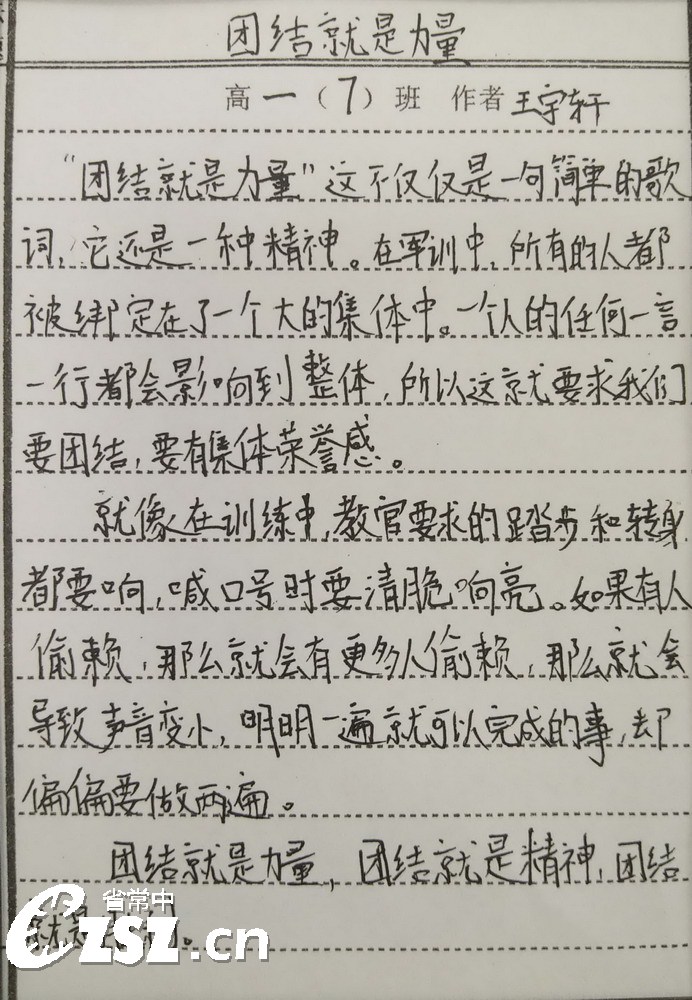 团结就是力量
高一（7）班 作者 王宇轩
“团结就是力量”这不仅仅是一句简单的歌
词，它还是一种精神。在军训中，所有的人都
被绑定在了一个大的集体中。一个人的任何一言
一行都会影响到整体，所以这就要求我们
要团结，要有集体荣誉感。
就像在训练中，教官要求的踏步和转身
都要响，喊口号时要清脆响亮。如果有人
偷赖，那么就会有更多人偷赖，那么就会
导致声音变小，明明一遍就可以完成的事，却
偏偏要做两遍。
团结就是力量，团结就是精神，团结
就是我们。
省常中
czsz.cn